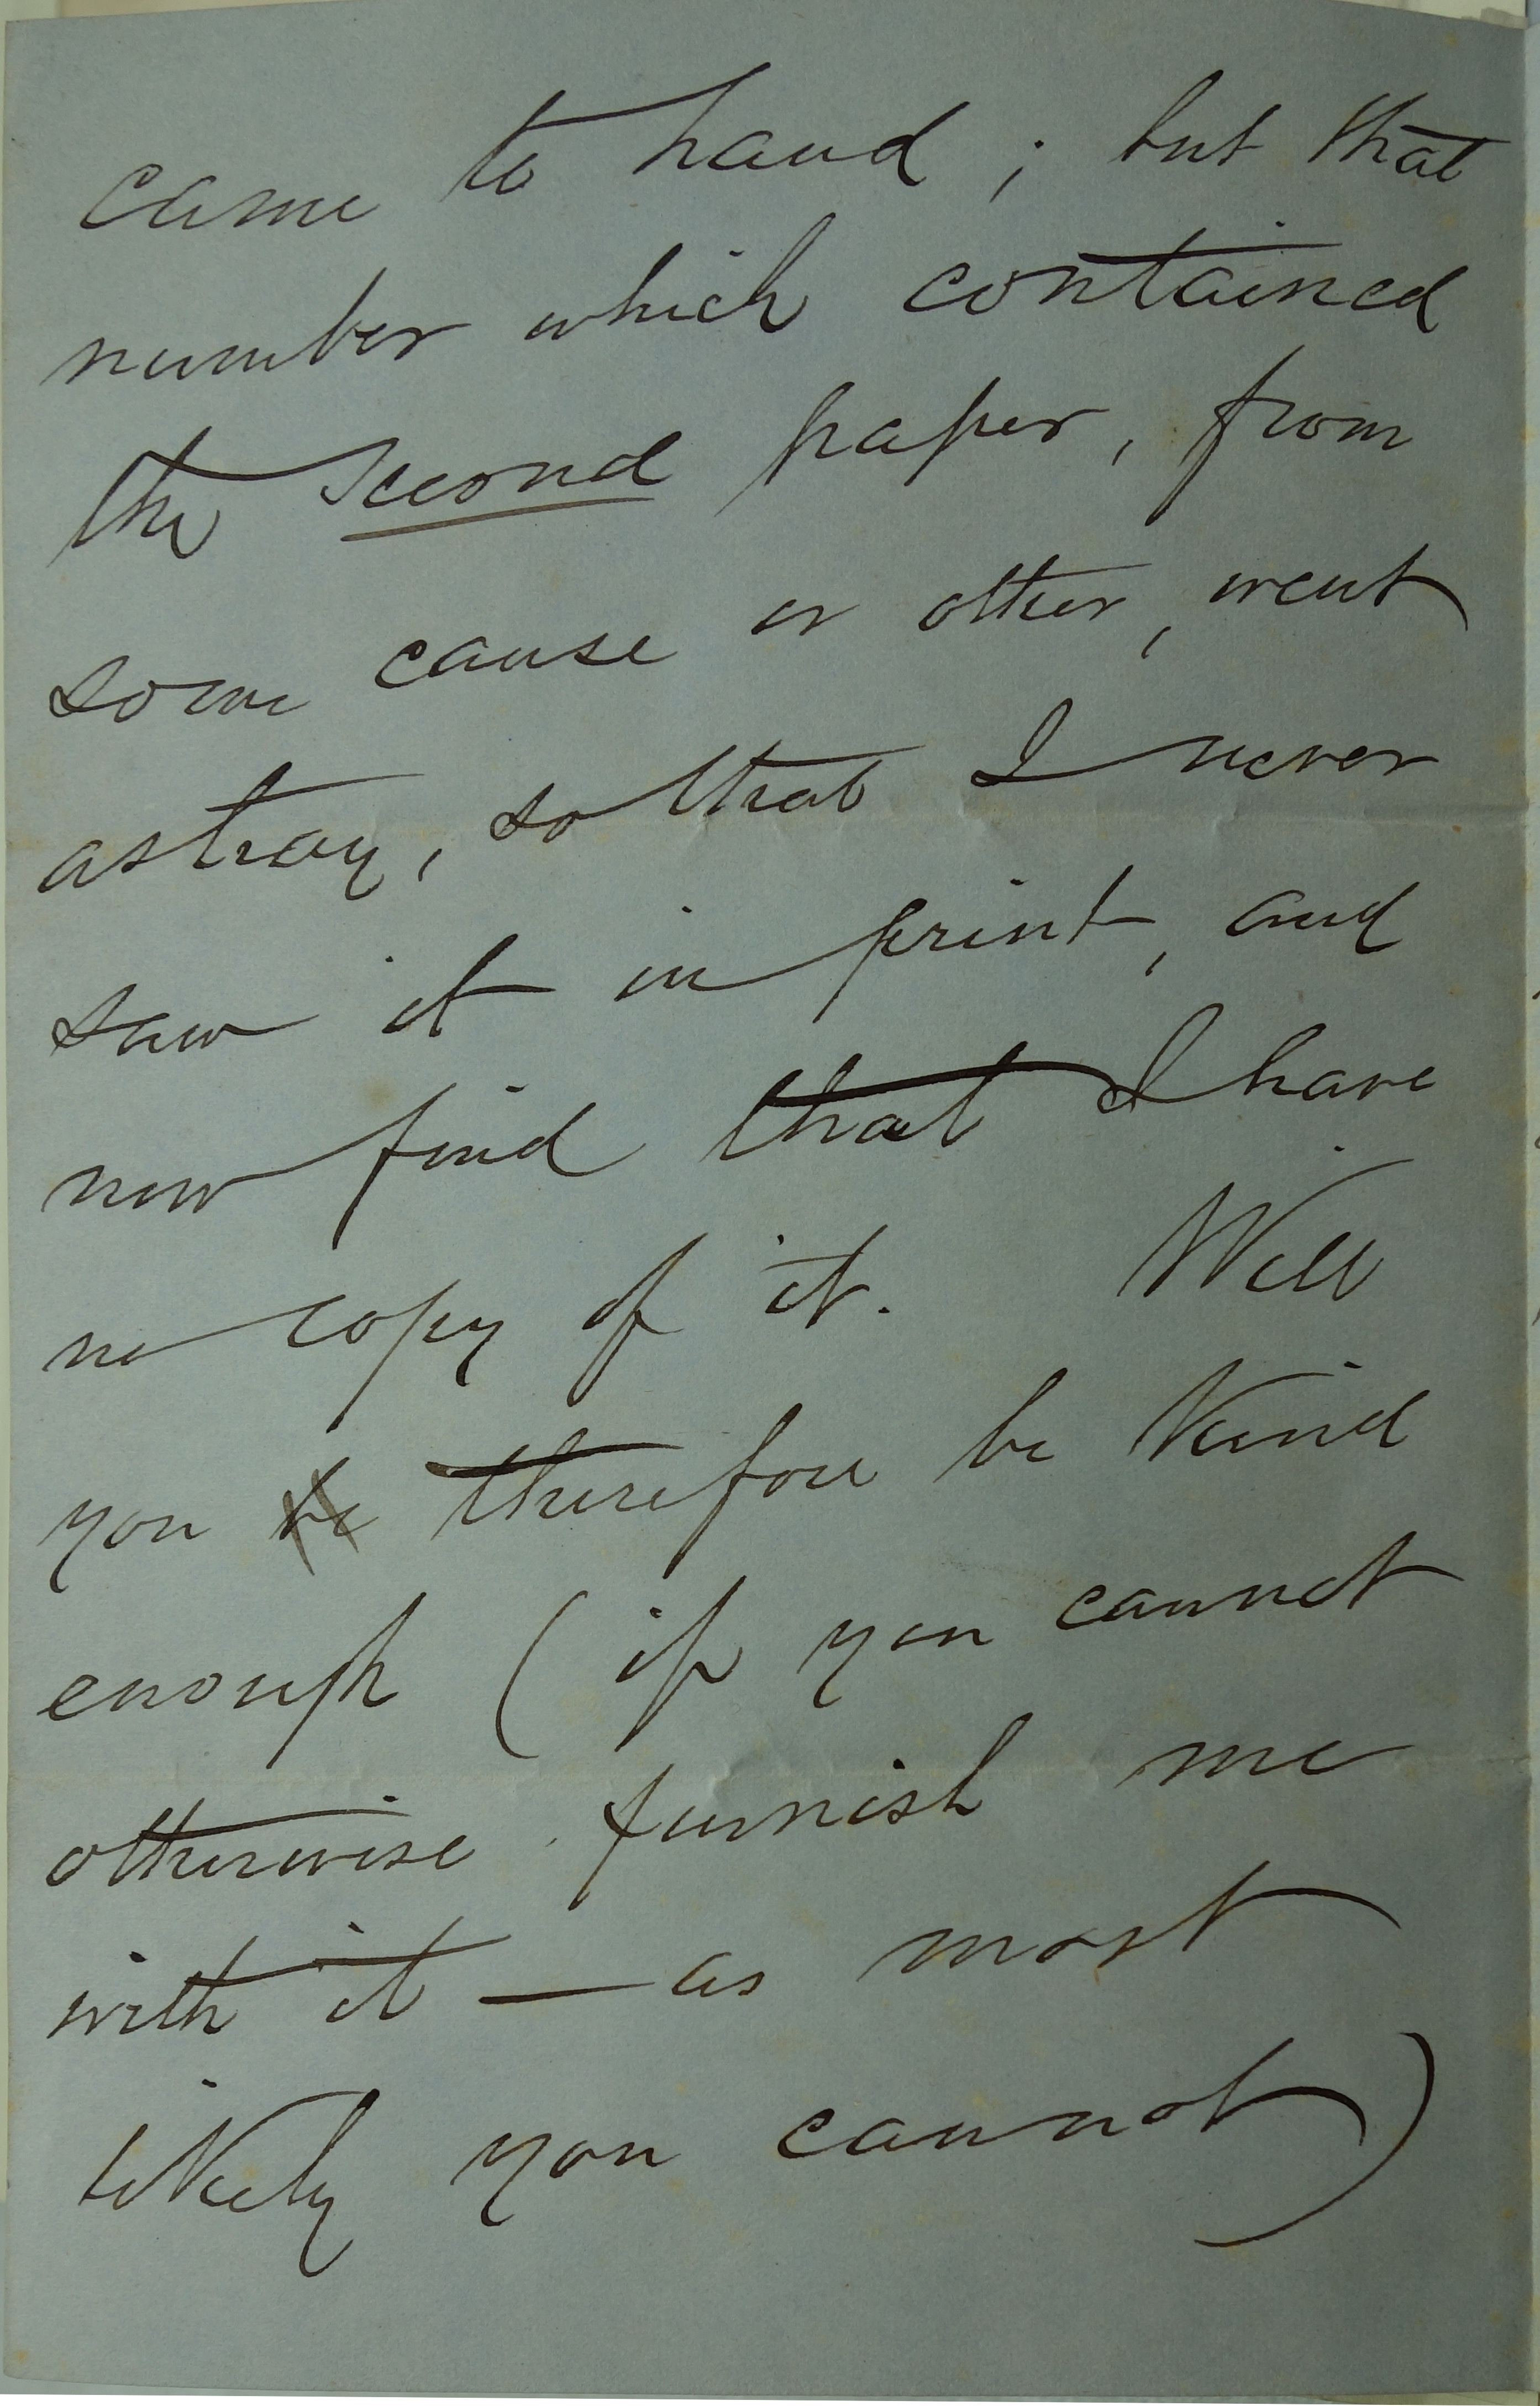 came to hand ; but that
number which contained
the second paper, from
some cause or other, went
astray, so that I never
saw it in print, and
now find that I have
no copy of it. Will
you be therefore be kind
enough (if you cannot
otherwise furnish me
with it — as most
likely you cannot)